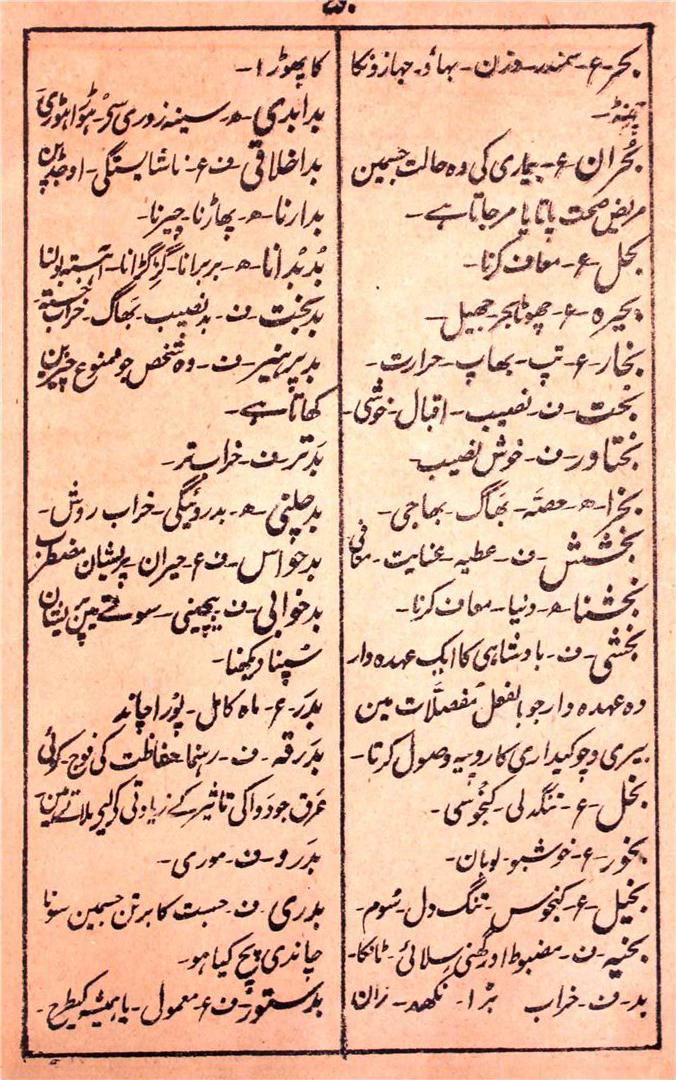 ۵۰
بحر ـ ع ـ سمندر ـ وزن ـ بہاؤ ـ جہازونکا
بُحران ـ ع ـ بیماری کی وہ حالت جسمین
مریض صحت پاتا یا مر جاتا ہے ـ
بحل ـ ع ـ معاف کرنا ـ
بحیرہ ـ ع ـ چھوٹا بحر جھیل ـ
بخار ـ ع ـ تپ ـ بھاپ ـ حرارت ـ
بخت ـ ف ـ نصیب ـ اقبال ـ خوشی ـ
بختاور ـ ف ـ خوش نصیب ـ
بخرا ـ ھ ـ حصتہ ـ بھاگ ـ بھاجی ـ
بخشش ـ ف ـ عطیہ ـ عنایت ـ معافی
بخشنا ـ ھ ـ دنیا ـ معاف کرنا ـ
بخشی ـ ف ـ بادشاہی کا ایک عہدہ دار
وہ عہدہ دار جو بالفعل مفصلَّات مین
بیری و چوکیداری کا روپیہ وصول کرتا ـ
بخل ـ ع ـ تنگدلی ـ کنجوسی ـ
بخور ـ ع ـ خوشبو ـ لوبان ـ
بخیل ـ ع ـ کنجوس ـ تنگ دل ـ شوم ـ
بخیہ ـ ف ـ مضبوط اور گھنی سلائی ـ ٹانکا ـ
بد ـ ف ـ خراب بُرا ـ نکھد ـ ران
کا پھوڑا ـ
بدابدی ـ ھ ـ سینہ زوری سے ـ ہوڑا ہوڑی
بداخلاقی ـ ف ع ـ ناشایستگی ـ اوجڈپن
بدارنا ـ ھ ـ پھاڑنا ـ چیرنا ـ
بُدبُدانا ـ ھ ـ بربرانا ـ گڑگڑانا ـ آہستہ بولنا
بدبخت ـ ف ـ بدنصیب ـ بھاگ ـ خراب خستہ ـ
بدپرہیز ـ ف ـ وہ شخص جو ممنوع چیزین
کھاتا ہے ـ
بَدتر ـ ف ـ خراب تر ـ
بدچلنی ـ ھ ـ بدرویگی ـ خراب روش ـ
بدحواس ـ ف ع ـ حیران پریشان مضطرب
بدخوابی ـ ف بیچینی ـ سوتے مین پریشان
سُپنا دیکھنا ـ
بدَر ـ ع ـ ماہ کامل ـ پُورا چاند
بدَرقہ ـ ف ـ رہنما حفاظت کی فوج ـ کوئی
عرَق جو دوا کی تاثیر کے زیادتی کو لیے ملاتے ہین ـ
بدَرو ـ ف ـ موری ـ
بدری ـ ف ـ جست کا برتن جسمین سونا
چاندی پچ کیا ہو ـ
بدستور ـ ف ع ـ معمول ـ یا ہمیشہ کیطرح ـ